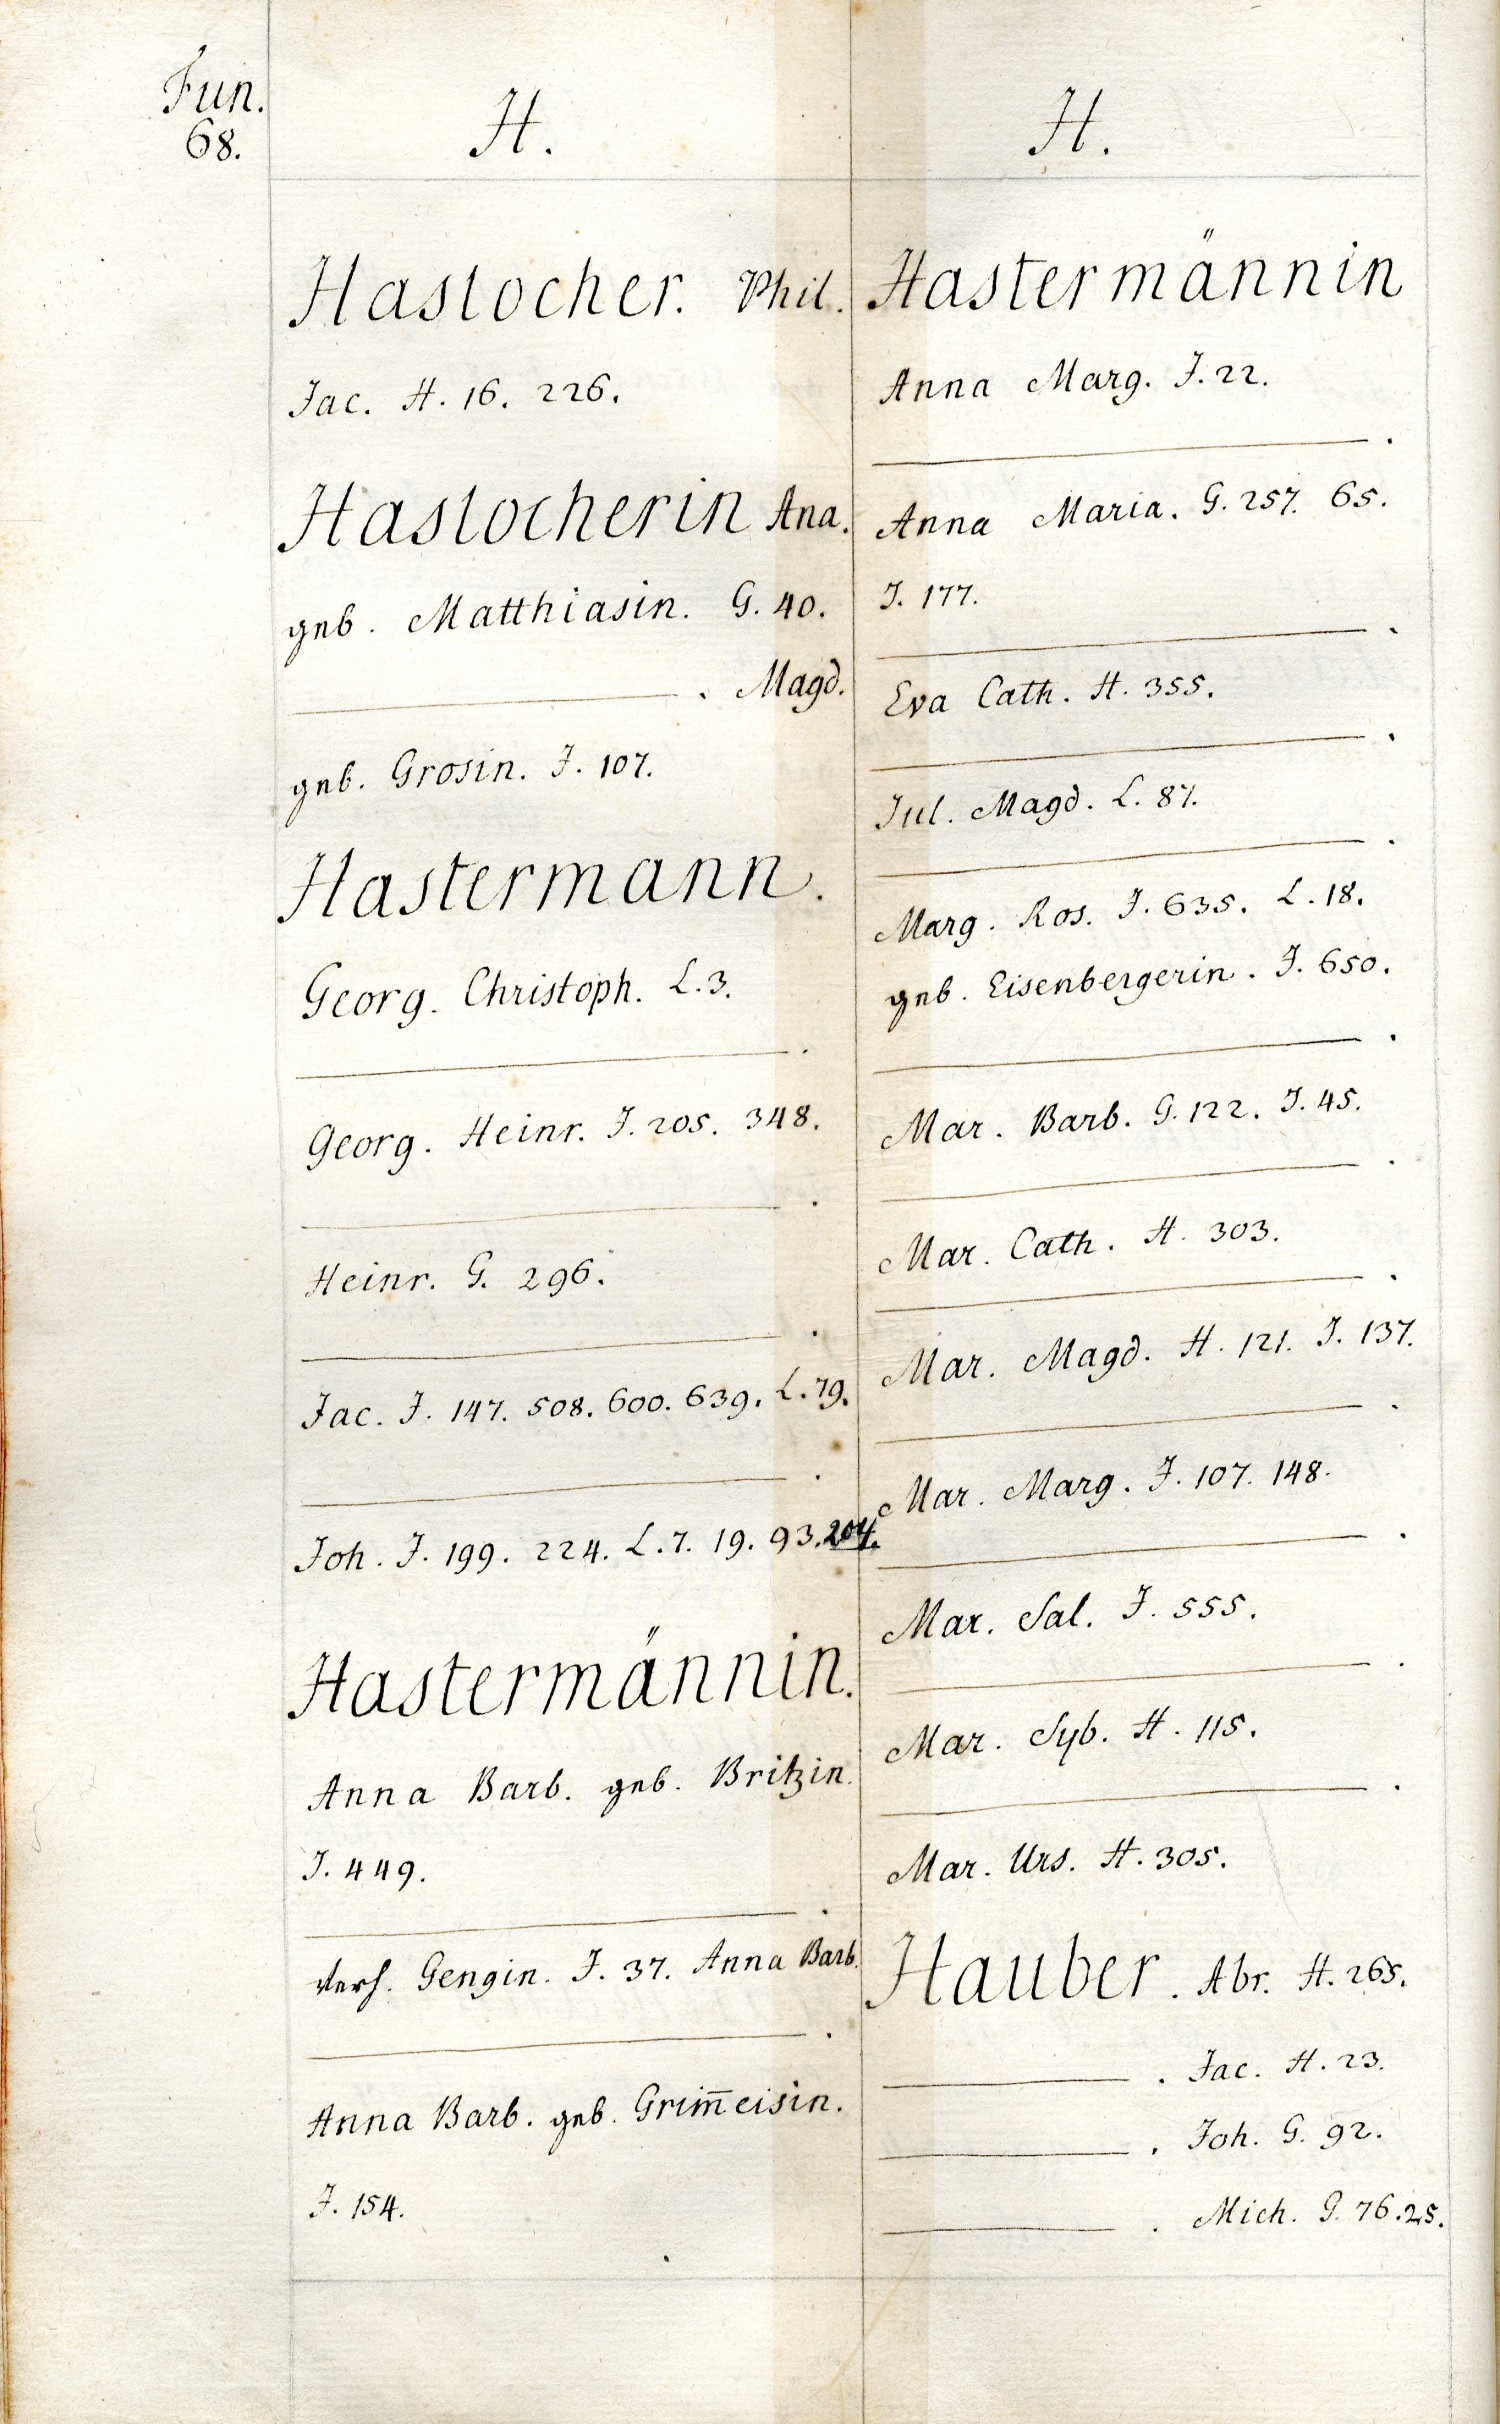 Fun.
68.
H.
Haslocher. Phil.
Jac. H. 16. 226.
Haslocherin Ana.
geb. Matthiasin. G. 40.
———. Magd.
geb. Grosin. J. 107.
Hastermann.
Georg. Christoph. L. 3.
———.
Georg. Heinr. J. 205. 348.
———.
Heinr. G. 296.
———.
Jac. J. 147. 508. 600. 639. L. 79.
———.
Joh. J. 199. 224. L. 7. 19. 93. 204.
Hastermännin.
Anna Barb. geb. Britzin.
J. 449.
———.
verh. Gengin. J. 37. Anna Barb.
———.
Anna Barb. geb. Grim̅eisin.
J. 154.
H.
Hastermännin
Anna Marg. J. 22.
———.
Anna Maria. G. 257. 65.
J. 177.
———.
Eva Cath. H. 355.
———.
Jul. Magd. L. 87.
———.
Marg. Ros. J. 635. L. 18.
geb. Eisenbergerin. J. 650.
———.
Mar. Barb. G. 122. J. 45.
———.
Mar. Cath. H. 303.
———.
Mar. Magd. H. 121. J. 137.
———.
Mar. Marg. J. 107. 148.
———.
Mar. Sal. J. 555.
———.
Mar. Syb. H. 115.
———.
Mar. Urs. H. 305.
Hauber. Abr. H. 265.
———. Jac. H. 23.
———. Joh. G. 92.
———. Mich. G. 76. 25.